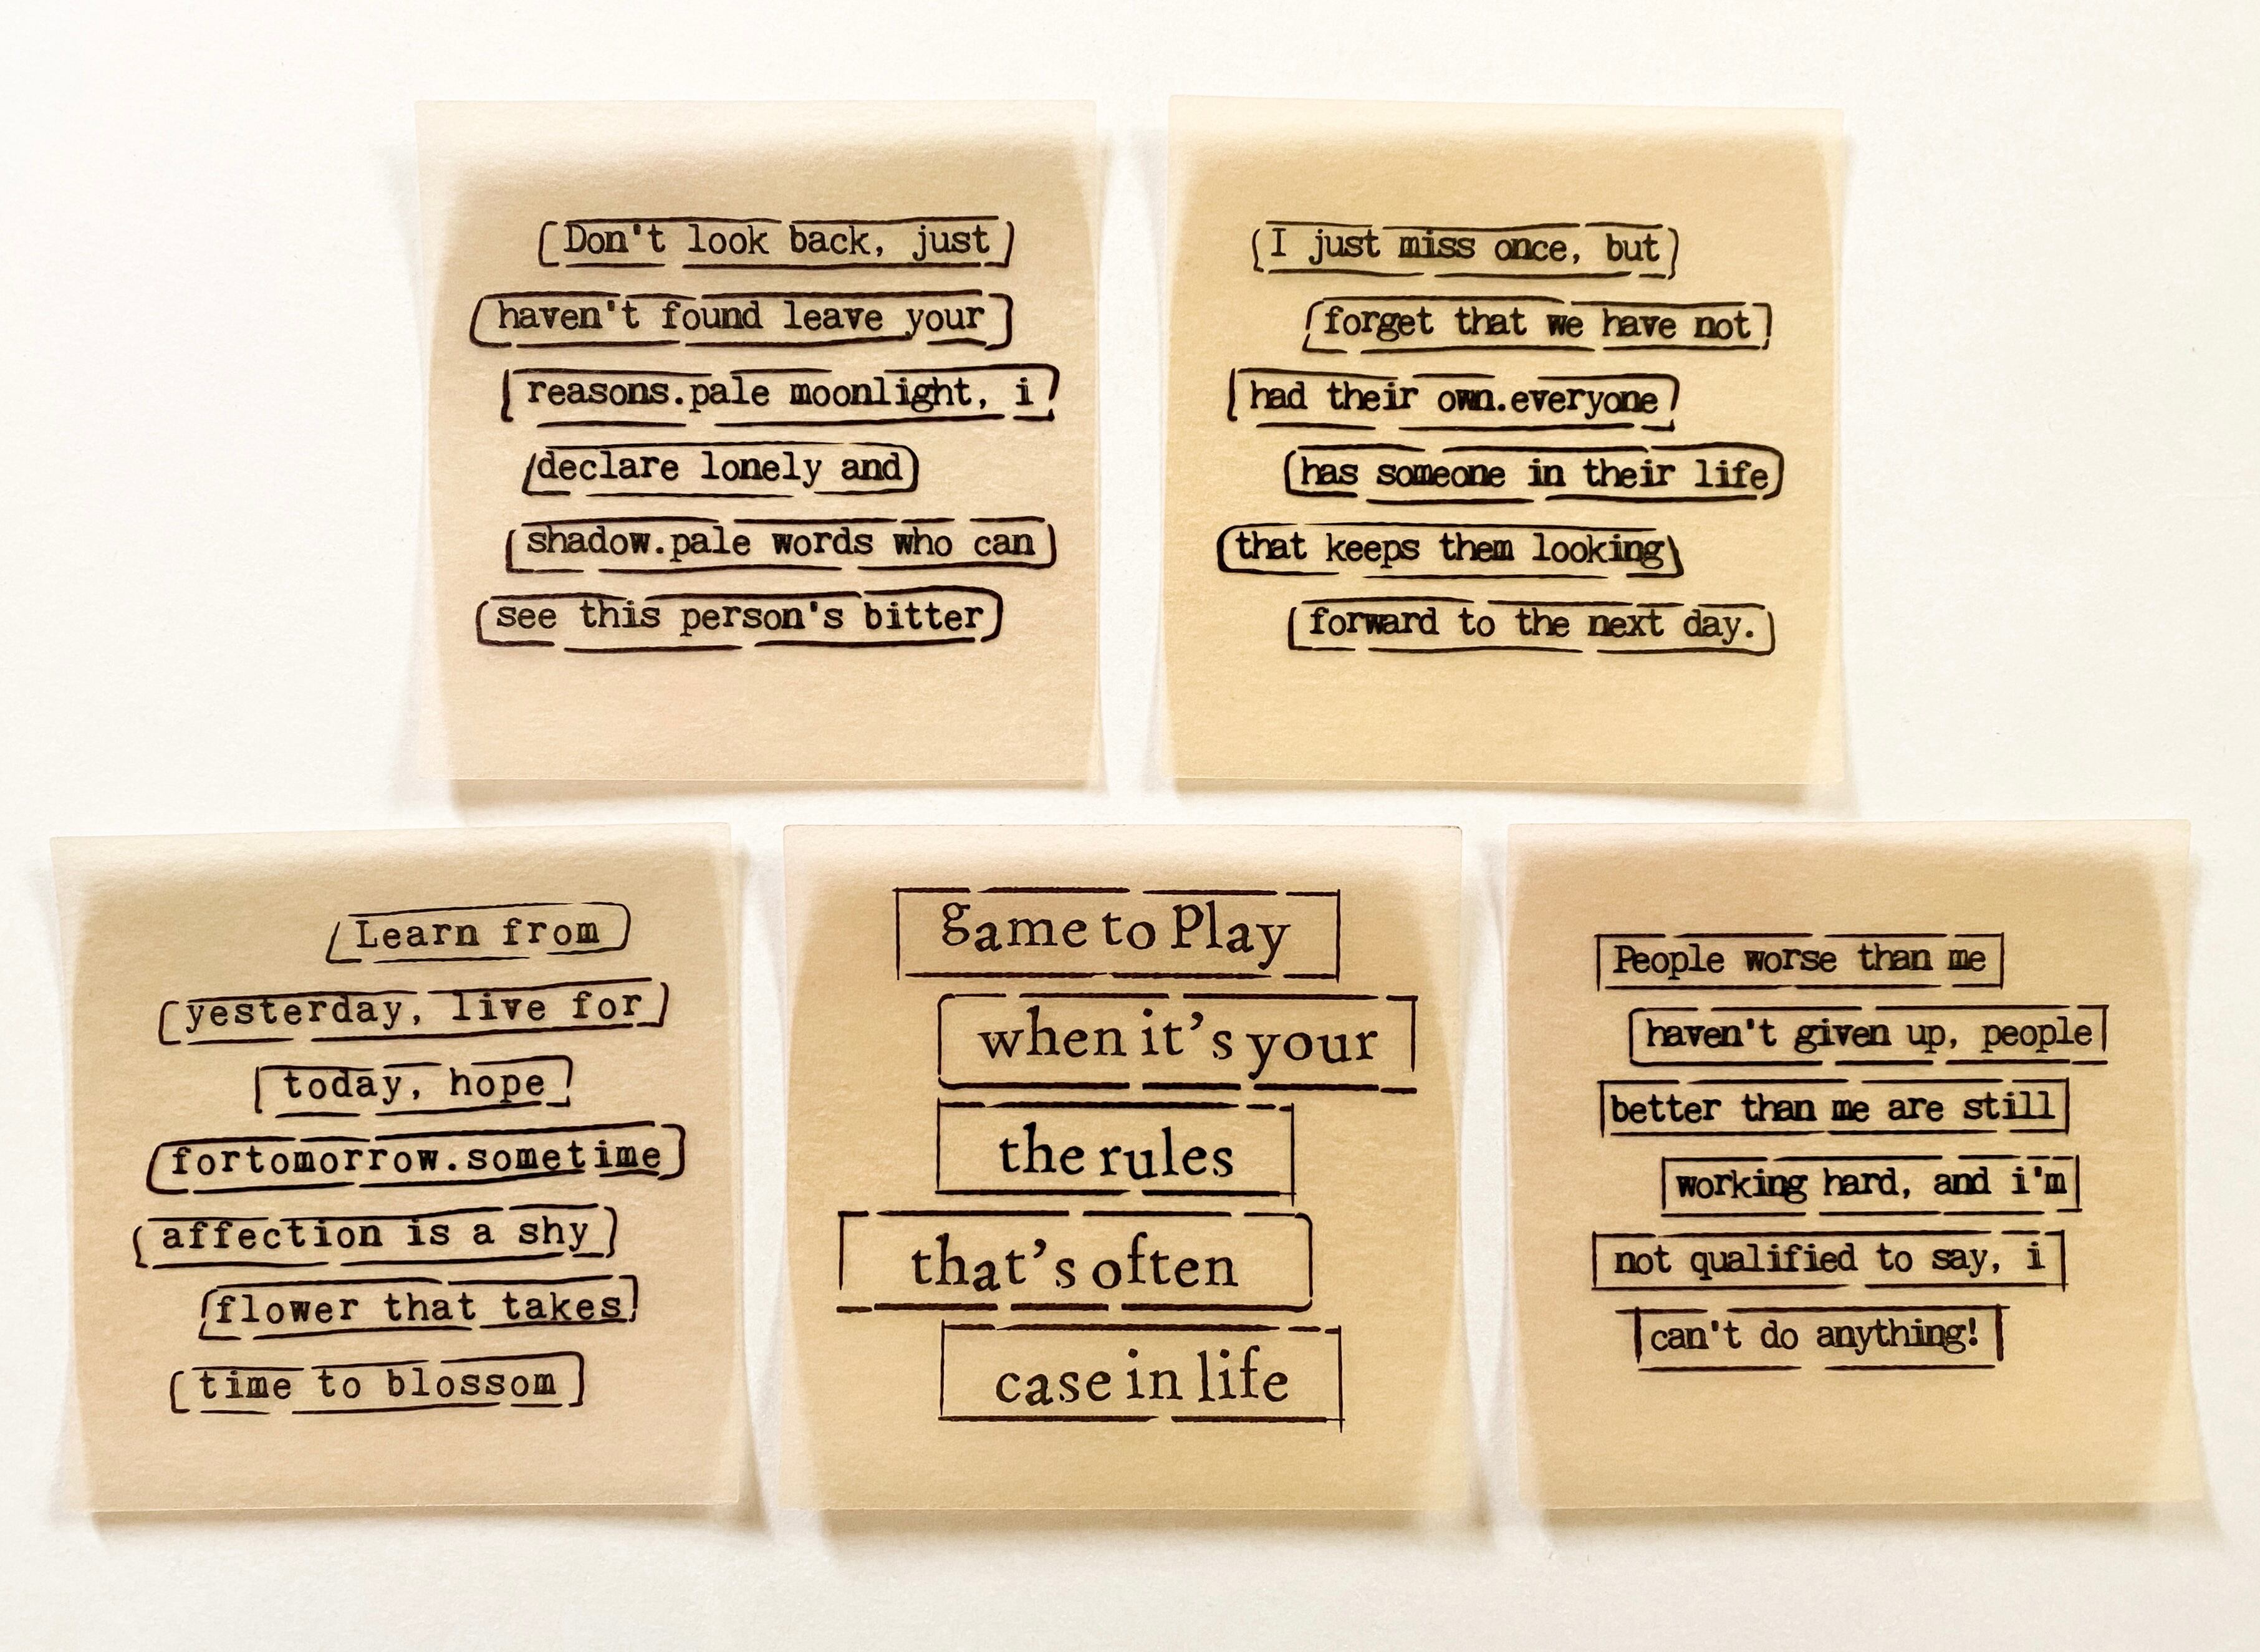 Don't look back, just
haven't found leave your
reasons.pale moonlight, i
declare lonely and
shadow.pale words who can
see this person's bitter
I just miss once, but
forget that we have not
had their own.everyone
has someone in their life
that keeps them looking
forward to the next day.
Learn from
yesterday, live for
today, hope
fortomorrow.sometime
affection is a shy
flower that takes
time to blossom
game to Play
when it's your
the rules
that's often
case in life
People worse than me
haven't given up, people
better than me are still
working hard, and i'm
not qualified to say, i
can't do anything!